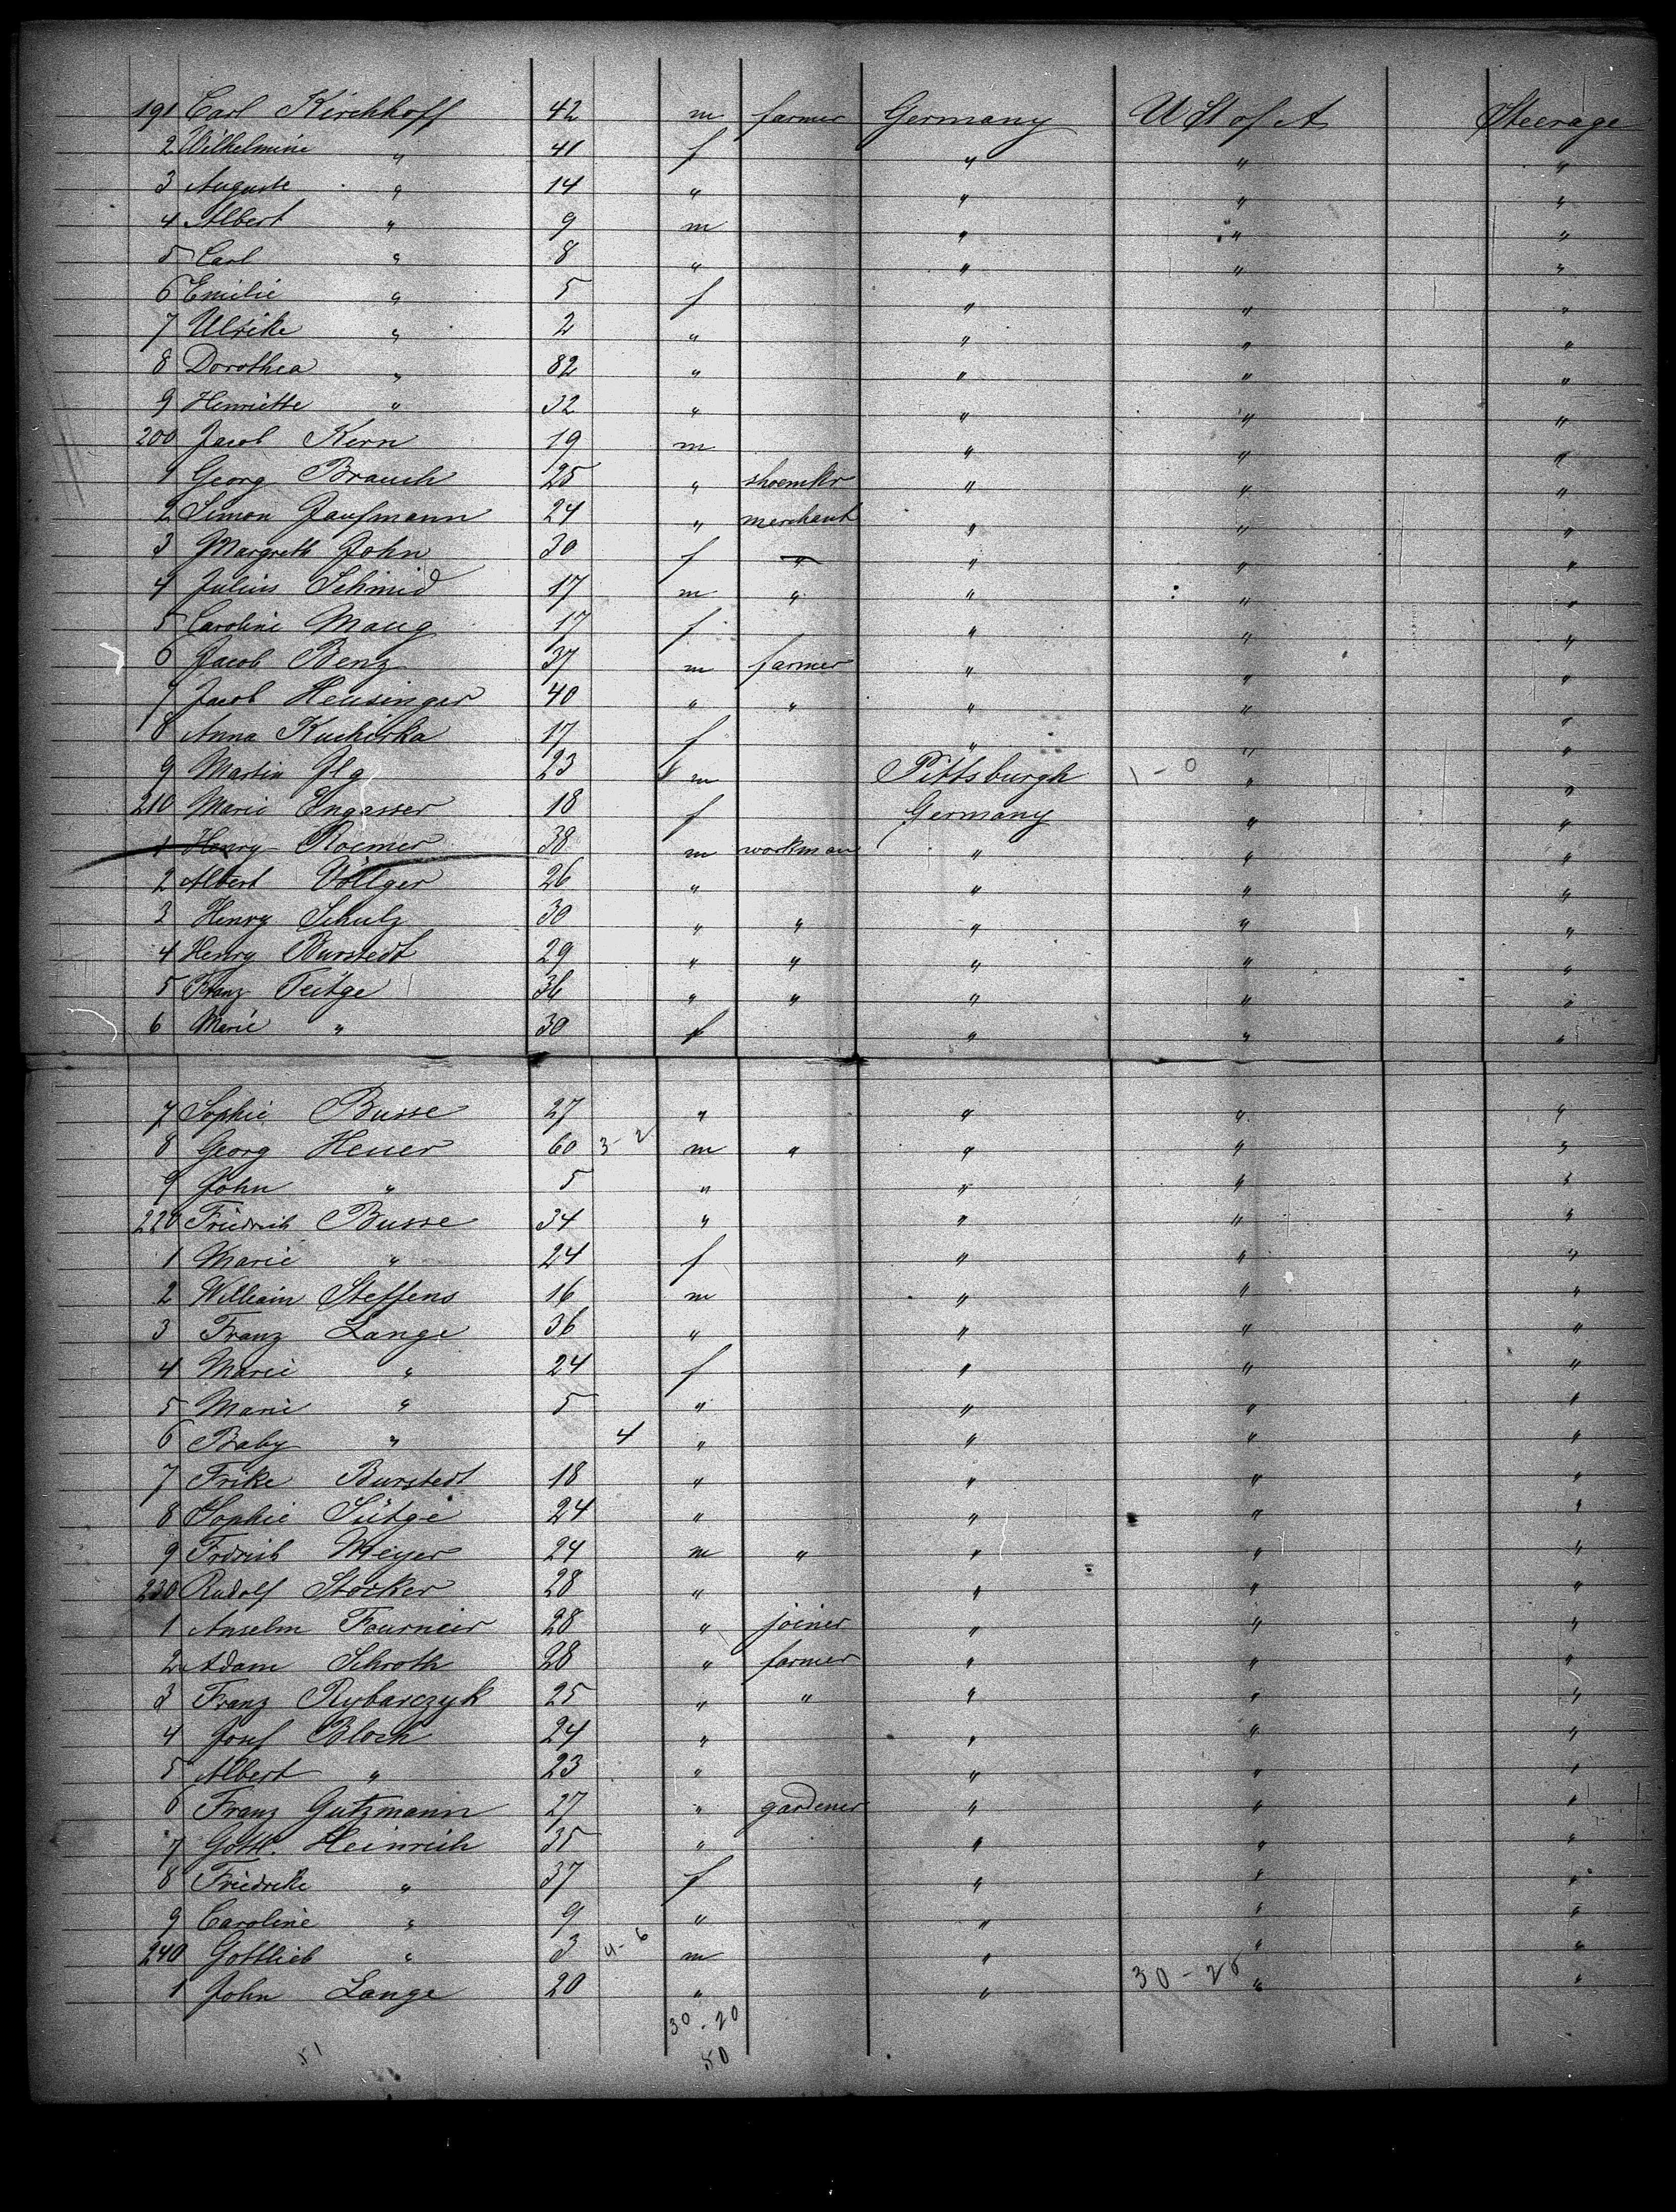 191 Carl Kirchhoff 42 m farmer Germany U St of A Steerage
2 Wilhelmine " 41 f " " "
3 Auguste " 14 " " " "
4 Albert " 9 m " " "
5 Carl " 8 " " " "
6 Emilie " 5 f " " "
7 Ulrike " 2 " " " "
8 Dorothea " 82 " " " "
9 Henriette " 32 " " " "
200 Jacob Kern 19 m " " "
1 Georg Brauch 25 " shoemkr " " "
2 Simon Jaufmann 24 " merchant " " "
3 Margreth John 30 f " " " "
4 Julius Schmid 17 m " " " "
5 Caroline Maug 17 f " " "
6 Jacob Benz 37 m farmer " " "
7 Jacob Heusinger 40 " " " " "
8 Anna Kuchirka 17 f " " "
9 Martin Jlg 23 m Pittsburgh 1-0 " "
210 Marie Ungasser 18 f Germany " "
1 Henry Roemer 38 m workman " " "
2 Albert Völlger 26 " " " "
3 Henry Schulz 30 " " " " "
4 Henry Burstedt 29 " " " " "
5 Franz Teitge 36 " " " " "
6 Marie " 30 f " " "
7 Sophie Busse 27 " " " "
8 Georg Heuer 60 3-2 m " " " "
9 John " 5 " " " "
220 Friedrich Busse 34 " " " "
1 Marie " 24 f " " "
2 William Steffens 16 m " " "
3 Franz Lange 36 " " " "
4 Marie " 24 f " " "
5 Marie " 5 " " " "
6 Baby " 4 " " " "
7 Frike Burstedt 18 " " " "
8 Sophie Sütge 24 " " " "
9 Frdrich Meyer 24 m " " " "
230 Rudolf Stocker 28 " " " "
1 Anselm Fourneir 28 " joiner " " "
2 Adam Schroth 28 " farmer " " "
3 Franz Rybarczyk 25 " " " " "
4 Josef Bloch 24 " " " "
5 Albert " 23 " " " "
6 Franz Gutzmann 27 " gardener " " "
7 Gottl. Heinrich 35 " " " "
8 Friedrike " 37 f " " "
9 Caroline " 9 " " " "
240 Gottlieb " 3 4-6 m " " "
1 John Lange 20 " " 30-26 " "
30-20
51 50